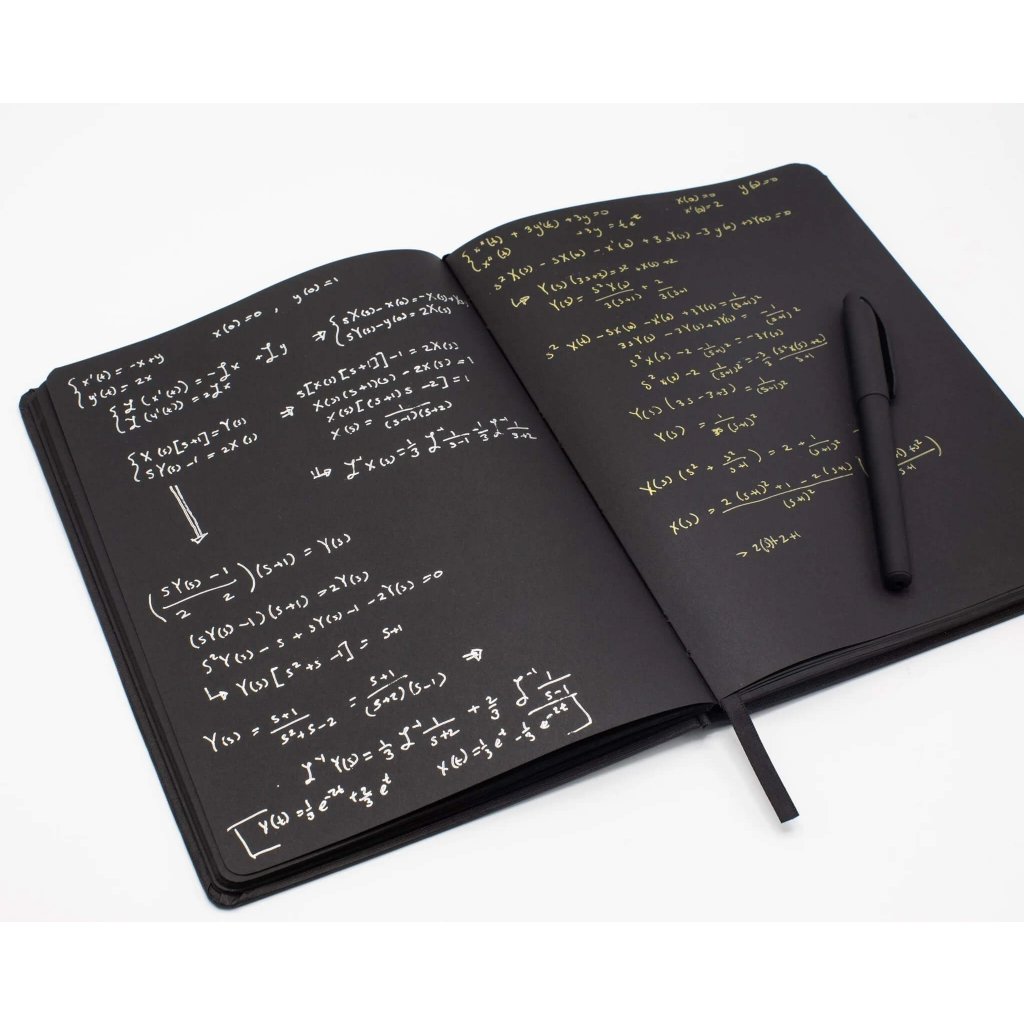 x(0)=0 , y(0)=1
{ x'(t) = -x+y
y'(t) = 2x
{ ℒ(x'(t)) = -ℒx + ℒy
ℒ(y'(t)) = 2ℒx
⇒ { sX(s)-x(0)=-X(s)+Y(s)
sY(s)-y(0)=2X(s)
{ X(s)[s+1]=Y(s)
sY(s)-1=2X(s)
⇒ s[X(s)[s+1]]-1=2X(s)
X(s)(s+1)(s)-2X(s)=1
X(s)[(s+1)s-2]=1
X(s)= 1/(s-1)(s+2)
↳ ℒ⁻¹X(s)=1/3 ℒ⁻¹ 1/s-1 = 1/3 ℒ⁻¹ 1/s+2
(sY(s)-1/2 2)(s+1)=Y(s)
(sY(s)-1)(s+1)=2Y(s)
s²Y(s)-s+sY(s)-1-2Y(s)=0
↳ Y(s)[s²+s-1]=s+1
Y(s)= s+1/s²+s-2 = s+1/(s+2)(s-1) ⇒
ℒ⁻¹Y(s)=1/3 ℒ⁻¹ 1/s+2 + 2/3 ℒ⁻¹ 1/s-1
Y(t)=1/3 e^-2t + 2/3 e^t X(t)=1/3 e^t - 1/3 e^-2t
{ x''(t) + 3y'(t) + 3y=0
x''(t) +3y = te^t
x(0)=0 y(0)=0
x'(0)=2
s²X(s)-sX(0)-x'(0)+3sY(s)-3y(0)+3Y(s)=0
↳ Y(s)(3s+3)=s²+X(s)+2
Y(s)= s²X(s)/3(s+1) + 2/3(s+1
s²X(s)-sx(0)-x'(0)+3Y(s)=1/(s+1)²
s²X(s)-2-1/(s+1)²=-3Y(s)
s²X(s)-2-1/(s+1)²=-3(s²X(s)+2)/s+1
Y(s)(3s-3+3)=1/(s+1)²
Y(s)= 1/3s(s+1)²
X(s)(s²+s²/s+1)=2+1/(s+1)² -
X(s)= 2(s+1)²+1-2(s+1)/(s+1)²
> 2(s)+2+1